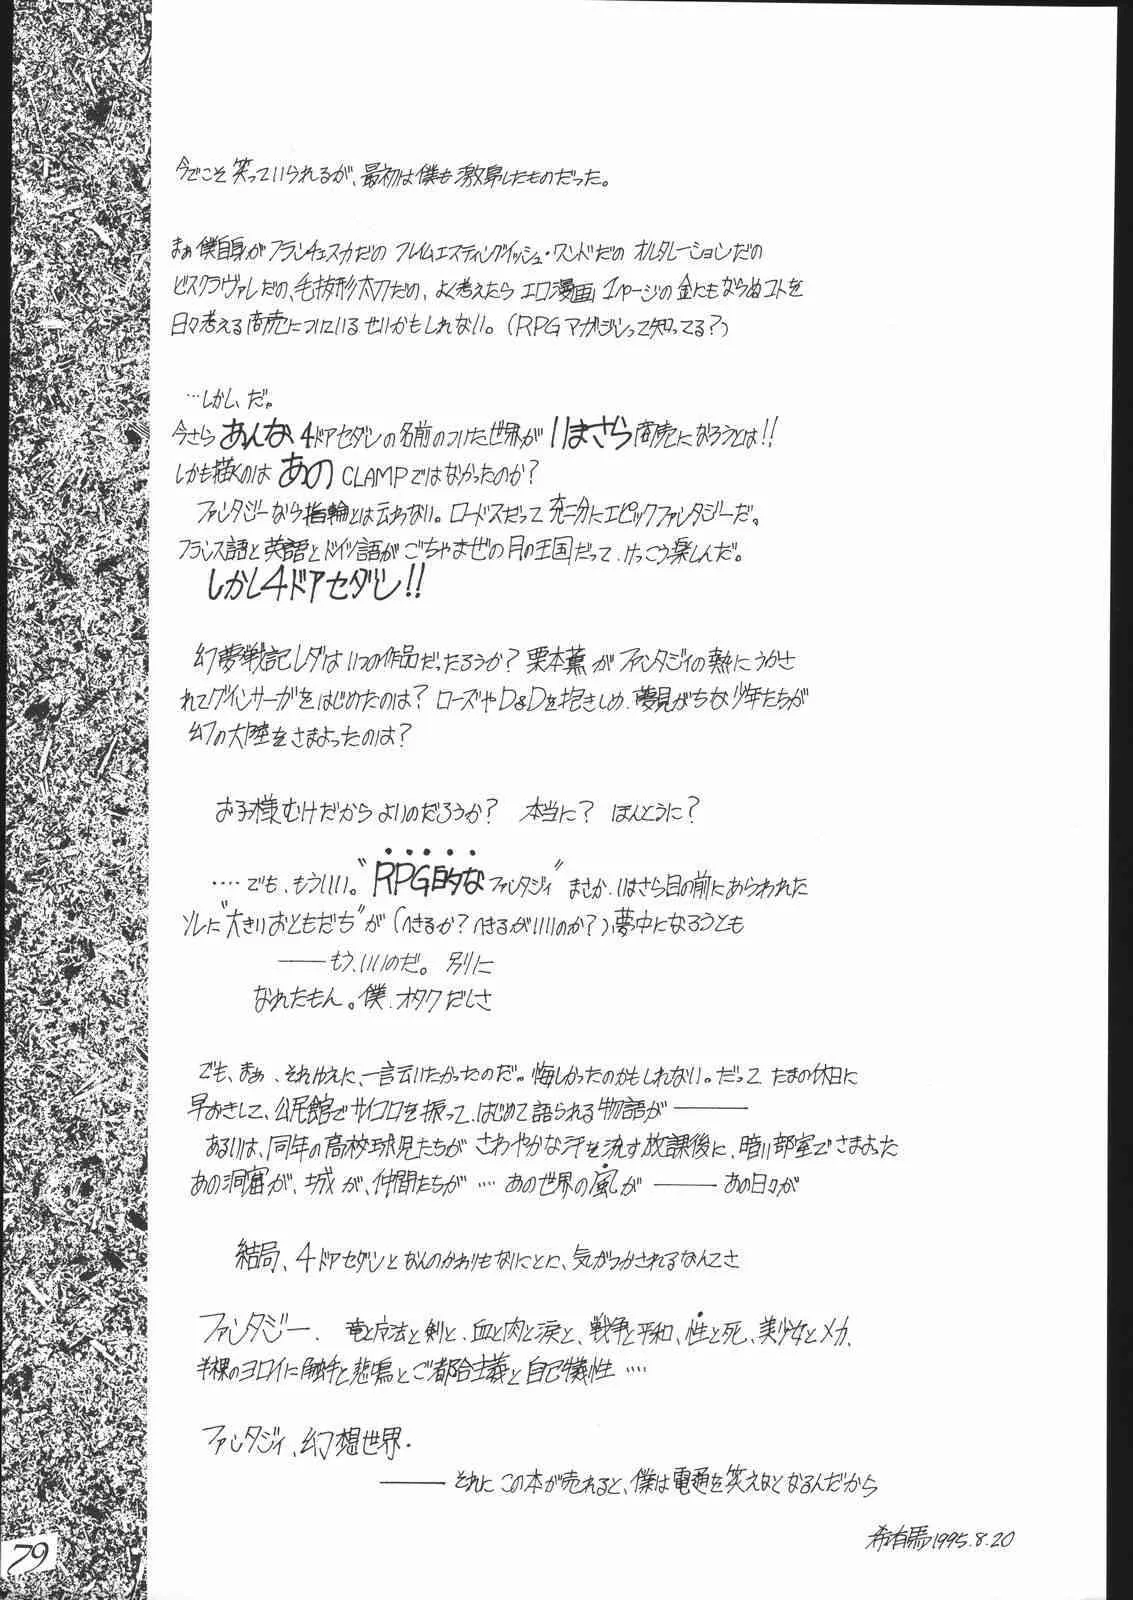 今でこそ笑っていられるが、最初は僕も激昂したものだった。
まぁ僕自身がフランチェスカだの フレイムエスティングイッシュ・ワンドだの オルタレーションだの
ビスクラヴァレだの、毛抜形太刀だの、よく考えたら エロ漫画 1ページの金にもならぬコトを
日々考える商売についているせいかもしれない。(RPGマガジンって知ってる?)
…しかし、だ。
今さら あんな 4ドアセダンの名前のついた世界が いまさら 商売になろうとは!!
しかも描くのは あの CLAMPではなかったのか?
ファンタジーなら指輪とは云わない。ロードスだって 充二分にエピックファンタジーだ。
フランス語と英語とドイツ語が ごちゃまぜの月の王国だって、けっこう楽しんだ。
しかし4ドアセダン!!
幻夢戦記レダはいつの作品だったろうか? 栗本薫が ファンタジィの熱にうかさ
れてグインサーガをはじめたのは? ローズやD&Dを抱きしめ、夢見がちな少年たちが
幻の大陸をさまよったのは?
お子様むけだから よいのだろうか? 本当に? ほんとうに?
‥‥でも、もういい。“RPG的な ファンタジィ” まさか、いまさら目の前にあらわれた
ソレに“大きいおともだち”が (へきるか? へきるがいいのか?)夢中になろうとも
――もう、いいのだ。別に
なれたもん。僕、オタクだしさ
でも、まぁ、それゆえに、一言云いたかったのだ。悔しかったのかもしれない。だって たまの休日に
早おきして、公民館でサイコロを振って、はじめて語られる物語が――
あるいは、同年の高校球児たちが さわやかな汗を流す放課後に、暗い部室でさまよった
あの洞窟が、城が、仲間たちが ‥‥ あの世界の風が ―― あの日々が
結局、4ドアセダンとなんのかわりもないことに、気がつかされるなんてさ
ファンタジー、竜と魔法と剣と、血と肉と涙と、戦争と平和、性と死、美少女とメカ、
半裸のヨロイに触手と悲鳴とご都合主義と自己犠牲 ‥‥
ファンタジィ、幻想世界.
――それに この本が売れると、僕は電通を笑えなくなるんだから
希有馬 1995.8.20
79